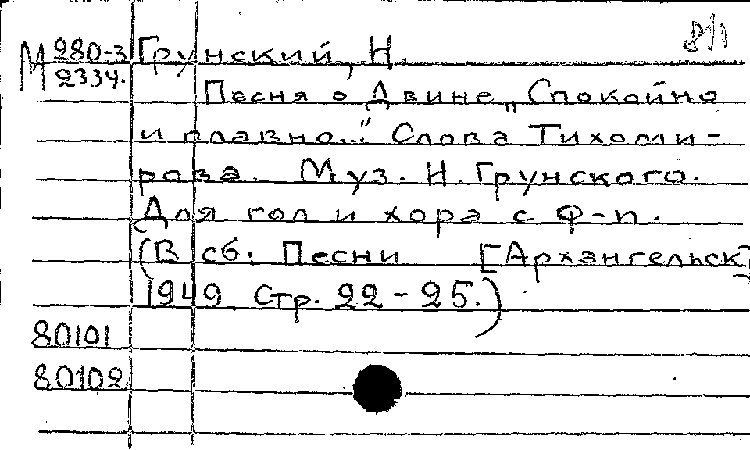 М 280-3 Грунский, Н.
2334.
Песня о Двине „Спокойно
и плавно..." Слова Тихоми-
рова. Муз. Н. Грунского.
Для гол и хора с ф-п.
(В сб. Песни [Архангельск]
1949 Стр. 22-25.)
80101
80102